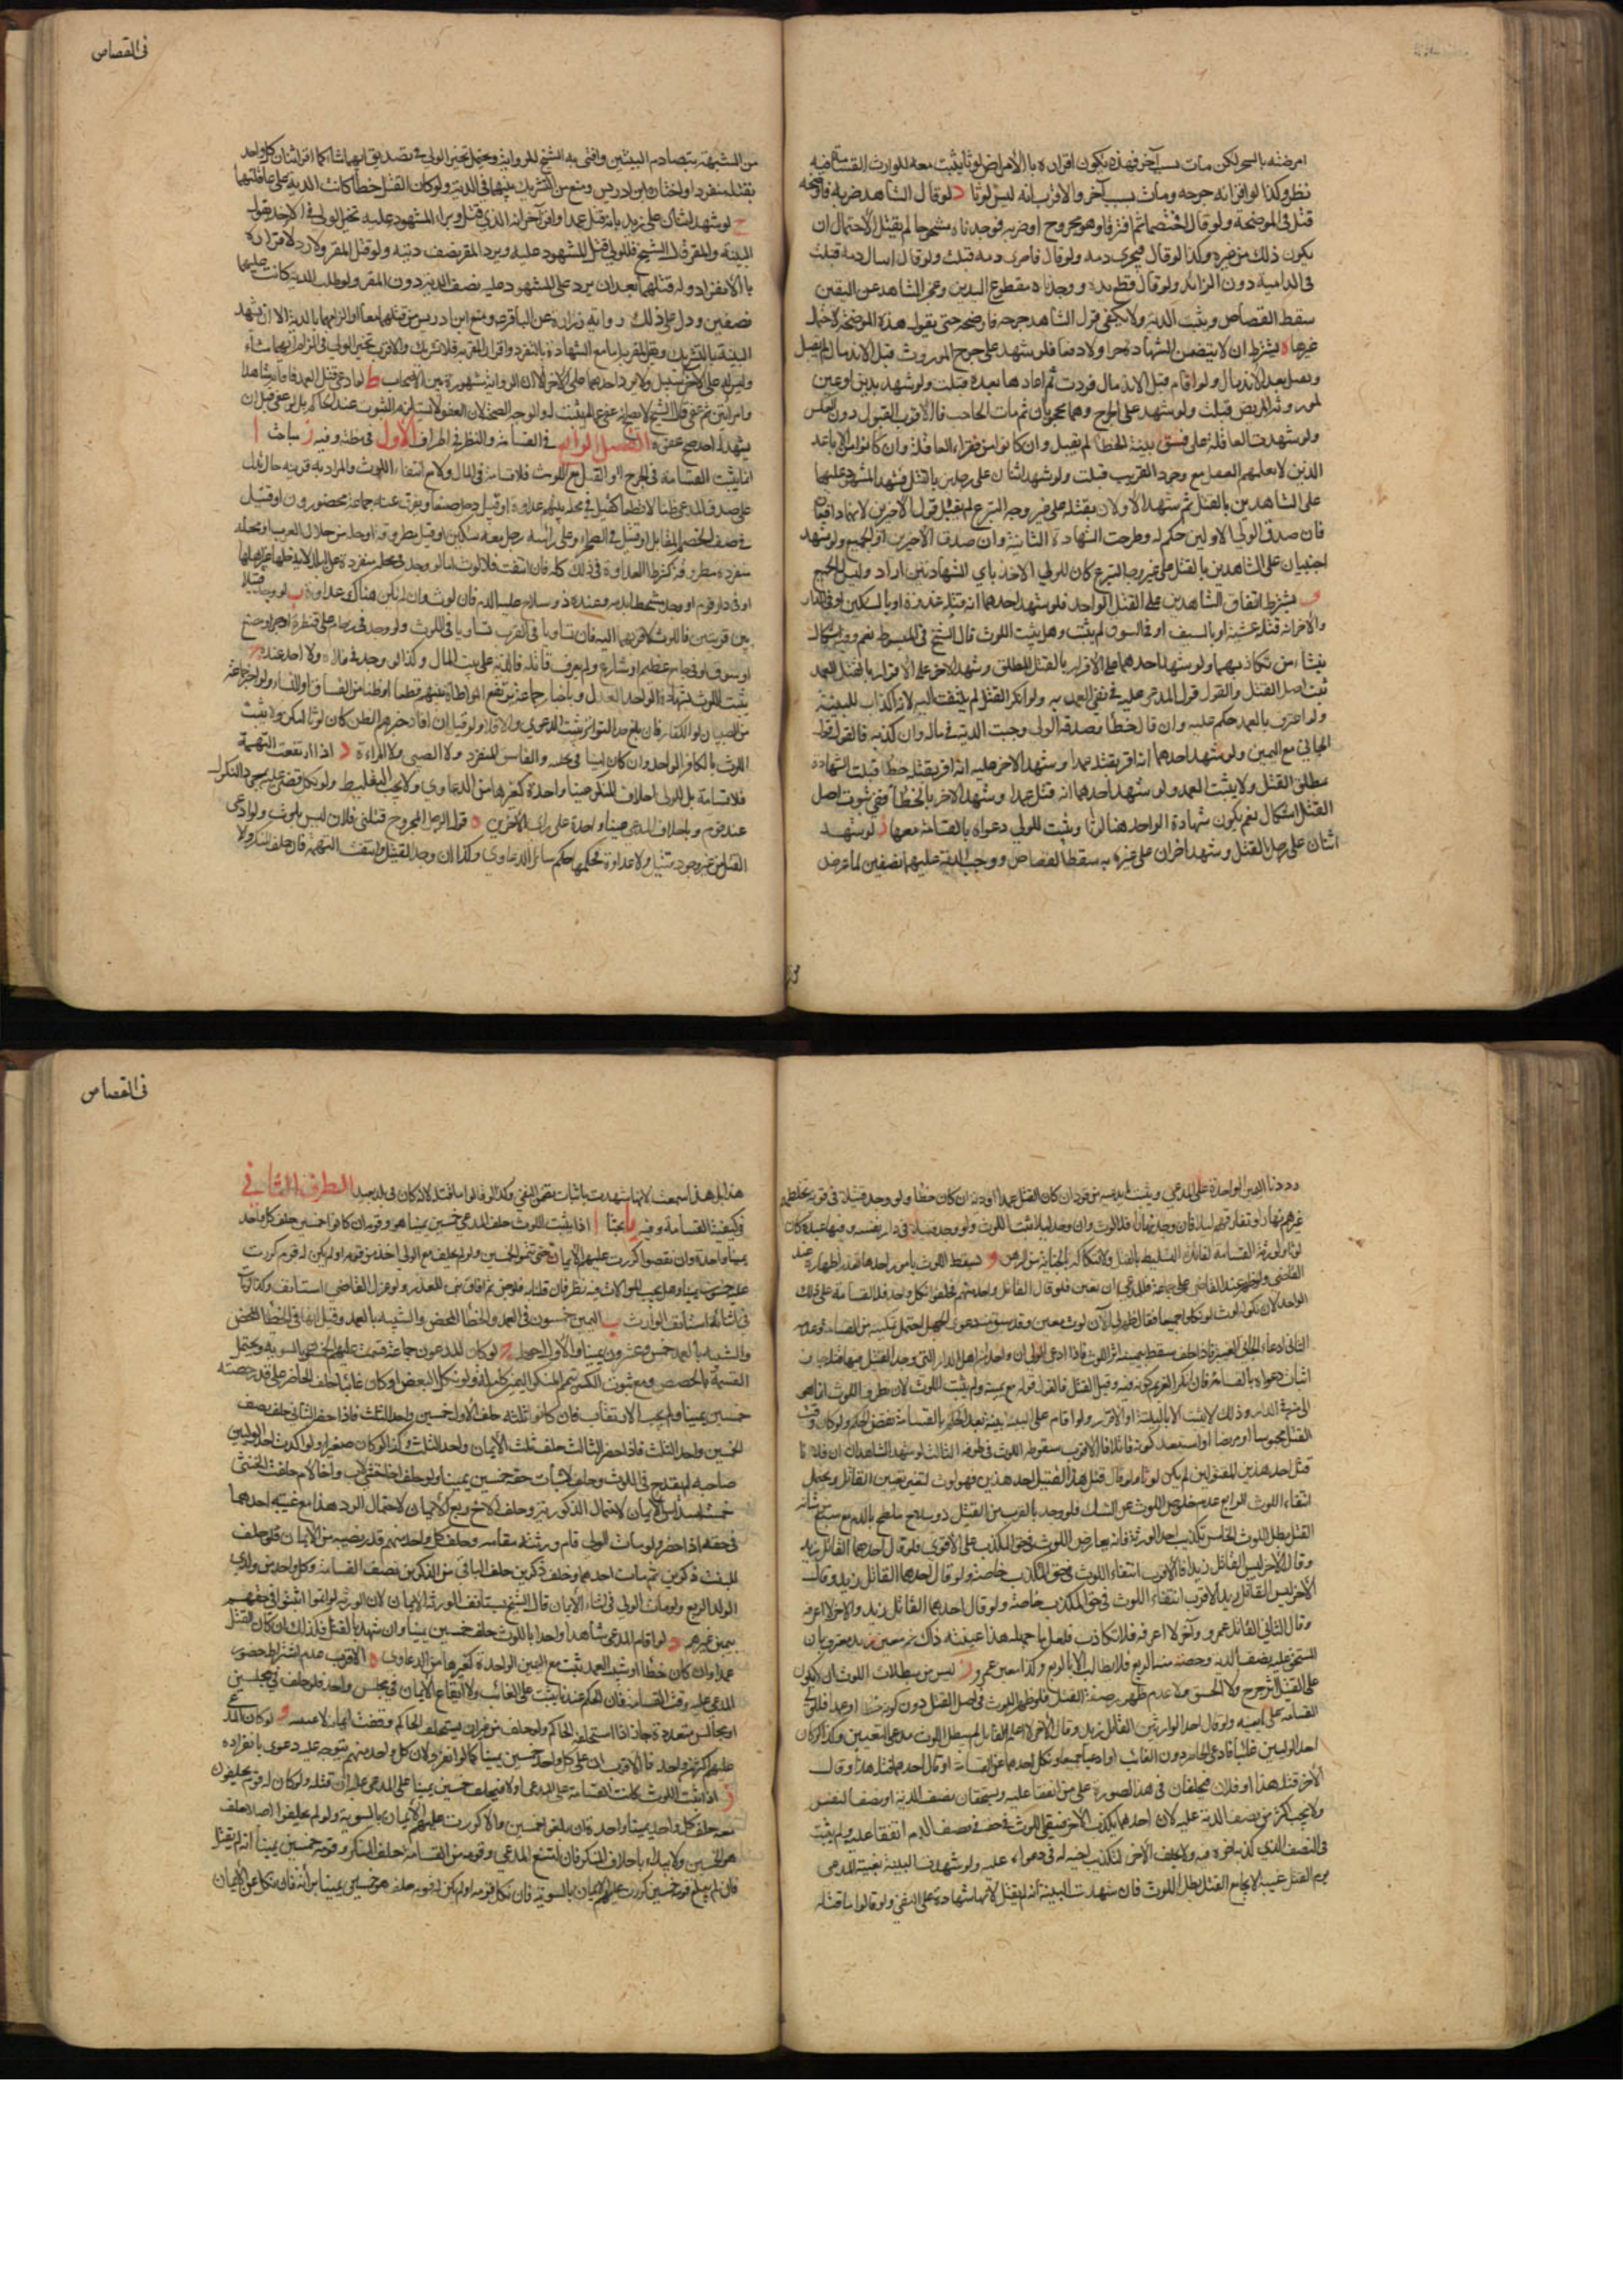 امرضته بالسحر لكن مات بسبب آخر فهذه يكون اقراره بالأمراض لوثا يثبت معه للوارث القسامة فيه
نظر وكذا لو اقر انه جرحه ومات بسبب آخر والاقرب انه ليس لوثا د لو قال الشاهد ضربه فاوضحه
قبل في الموضحة ولو قال اختصما ثم افترقا وهو مجروح او ضربه فوجدناه مشجوجا لم يقبل لاحتمال ان
يكون ذلك من غيره وكذا لو قال فجرى دمه ولو قال فاجرى دمه قبلت ولو قال اسال دمه قبلت
في الدامية دون الزائد ولو قال قطع يده ووجدناه مقطوع اليدين وعجز الشاهد عن اليقين
سقط القصاص ويثبت الدية ولا يكفي قول الشاهد جرحه فاوضحه حتى يقول هذه الموضحة لاحتمال
غيرها ه يشترط ان لا يتضمن الشهادة جرا ولا دفعا فلو شهد على جرح الموروث قبل الاندمال لم يقبل
ويقبل بعد الاندمال ولو اقام قبل الاندمال فردت ثم اعادها بعده قبلت ولو شهد بدين او عين
لموروثه المريض قبلت ولو شهد على الجرح وهما محجوبان ثم مات الحاجب فالاقرب القبول دون العكس
ولو شهدت العاقلة على فسق بينة الخطأ لم يقبل وان كانوا من فقراء العاقلة وان كانوا من الاباعد
الذين لا يعلهم العقل مع وجود القريب قبلت ولو شهد اثنان على رجلين بالقتل فشهد المشهود عليهما
على الشاهدين بالقتل ثم شهد الاولان بقتله على غير وجه التبرع لم يقبل قول الاخيرين لانهما دافعان
فان صدق الولي الاولين حكم له وطرحت الشهادة الثانية وان صدق الاخيرين او الجميع ولو شهد
اجنبيان على الشاهدين بالقتل على غير وجه التبرع كان للولي الاخذ باي الشهادتين اراد وليس للجميع
و يشترط اتفاق الشاهدين على القتل الواحد فلو شهد احدهما انه قتله غدوة او بالسكين او في الدار
والآخر انه قتله عشية او بالسيف او في السوق لم يثبت وهل يثبت اللوث قال الشيخ في المبسوط نعم وفيه اشكال
ينشأ من تكاذبهما ولو شهد احدهما على الاقرار بالقتل المطلق وشهد الآخر على الاقرار بالقتل العمد
ثبت اصل القتل والقول قول المدعى عليه في نفي العمدية ولو انكر القتل لم يلتفت اليه لانه اكذاب للبينة
ولو اعترف بالعمد حكم عليه وان قال خطأ وصدقه الولي وجبت الدية في ماله وان كذبه فالقول قول
الجاني مع اليمين ولو شهد احدهما انه اقر بقتله عمدا وشهد الآخر عليه انه اقر بقتله خطأ قبلت الشهادة
مطلق القتل ولا يثبت العمد ولو شهد احدهما انه قتل عمدا وشهد الآخر بالخطأ ففي ثبوت اصل
القتل اشكال نعم يكون شهادة الواحد هنا لوثا ويثبت للولي دعواه بالقسامة معها ز لو شهد
اثنان على رجل بالقتل وشهد آخران على غيره به سقط القصاص ووجب الدية عليهما نصفين لما عرض
في القصاص
من الشبهة بتصادم البينتين وافتى به الشيخ للرواية ويحتمل تخير الولي في تصديق ايهما شاء كما اقر اثنان كل واحد
بقتله منفردا واختاره ابن ادريس ومنع من التشريك بينهما في الدية ولو كان القتل خطأ كانت الدية على عاقلتهما
ح لو شهد اثنان على زيد بانه قتل عمدا واقر آخر انه الذي قتل وبراء المشهود عليه تخير الولي في الاخذ بقول
البينة والمقر قال الشيخ فللولي قتل المشهود عليه ويرد المقر نصف ديته ولو قتل المقر ولا رد لاقراره
بالانفراد وله قتلهما بعد ان يرد على المشهود عليه نصف الدية دون المقر ولو طلب الدية كانت عليهما
نصفين ودل على ذلك رواية زرارة عن الباقر ع ومنع ابن ادريس من قتلهما معا او الزامهما بالدية الا ان تشهد
البينة بالتشريك ويقر المقر به اما مع الشهادة بالتفرد واقرار المقر به فلا تشريك والاقرب تخير الولي في الزام ايهما شاء
وليس له على الآخر سبيل ولا يرد احدهما على الآخر الا ان الرواية مشهورة بين الاصحاب ط لو ادعى قتل العمد فاقام شاهدا
وامرأتين ثم عفى قال الشيخ لا يصح لانه عفى عما لم يثبت له والوجه الصحة لان العفو لا يستلزم الثبوت عند الحاكم بل لو عفى قبل ان
يشهد احد صح عفوه الفصل الرابع في القسامة والنظر في اطراف الاول في مظنته وفيه ز مباحث ا
انما يثبت القسامة في الجرح او القتل مع اللوث فلا قسامة في المال ولا مع انتفاء اللوث والمراد به قرينة حال تدل
على صدق المدعي ظنا لا قطعا كقتيل في محلة بينهم عداوة او قتيل دخل صفا وتفرق عنه جماعة محصورون او قتيل
في صف الخصم المقابل او قتيل في الصحراء وعلى رأسه رجل معه سكين او قتيل بطروقه او حلة من حلال العرب او محلة
منفردة مطروقة كشرط العداوة في ذلك كله فان انتفت فلا لوث
او في دار قوم او وجد متشحطا بدمه وعنده ذو سلاح عليه الدم فان لوث وان لم يكن هناك عداوة ب لو وجد قتيلا
بين قريتين فاللوث لاقربهما اليه فان تساويا في القرب تساويا في اللوث ولو وجد في زحام على قنطرة او جسر او مصنع
او سوق او في جامع عظيم او شارع ولم يعرف قاتله فالدية على بيت المال وكذا لو وجد في فلاة ولا احد عنده ج
يثبت اللوث بشهادة الواحد العدل وباخبار جماعة يرتفع المواطاة بينهم قطعا او ظنا من الفساق او النساء ولو اخبر جماعة
من الصبيان او الكفار فان بلغ حد التواتر يثبت الدعوى والا فلا ولو قيل ان افاد خبرهم الظن كان لوثا امكن ولا يثبت
اللوث بالكافر الواحد وان كان امينا في نحلته والفاسق المنفرد ولا الصبي ولا المراءة د اذا ارتفعت التهمة
فلا قسامة بل للولي احلاف المنكر يمينا واحدة كغيرها من الدعاوي ولا يجب التغليظ ولو نكل قضى عليه بمجرد النكول
عند قوم وباحلاف المدعي يمينا واحدة على راى الآخرين ه قول الرجل المجروح قتلني فلان ليس بلوث ولو ادعى
القتل من غير وجود قتيل ولا عداوة فحكمها حكم سائر الدعاوي وكذا ان وجد القتيل وانتفت التهمة فان حلف المنكر والا
رددنا اليمين الواحدة على المدعي ويثبت ما يدعيه من قود ان كان القتل عمدا او دية ان كان خطأ ولو وجد قتيلا في قرية يختلطهم
غيرهم نهارا وتفارقهم ليلا فان وجد نهارا فلا لوث وان وجد ليلا ثبت اللوث ولو وجد قتيلا في دار بنفسه وفيها عبده كان
لوثا ولورثته القسامة
الواحد لان
الثاني ادعاء الجاني الغيبة
اثبات دعواه بالقسامة فان انكر الغريم كونه فيه وقت القتل فالقول قوله مع يمينه ولم يثبت اللوث لان تطرق اللوث انما هو
الى من في الدار وذلك لا يثبت الا بالبينة او الاقرار ولو اقام على البينة بينة بعد الحكم بالقسامة نقض الحكم ولو كان وقت
القتل محبوسا او مريضا واستبعد كونه قاتلا فالاقرب سقوط اللوث في طرفه الثالث لو شهد الشاهدان ان فلانا
قتل احد هذين المقتولين لم يكن لوثا ولو قال قتل هذا القتيل احد هذين فهو لوث لتفي تعيين القاتل ويحتمل
انتفاء اللوث الرابع عدم خلوص اللوث عن الشك فلو وجد بالقرب من القتيل ذو سلاح ملطخ بالدم مع سبع من شأنه
القتل بطل اللوث الخامس تكذيب احد الورثة فانه يعارض اللوث في حق المكذب على الاقوى فلو قال احدهما القاتل زيد
وقال الآخر ليس القاتل زيدا فالاقرب انتفاء اللوث في حق المكذب خاصة ولو قال احدهما القاتل زيد وقال
الآخر ليس القاتل زيد الاقرب انتفاء اللوث في حق المكذب خاصة ولو قال احدهما القاتل زيد والآخر لا اعرفه
وقال الثاني القاتل عمرو وآخر لا اعرفه فلا تكاذب فلعل ما جهله هذا عينه ذاك
المستحق عليه نصف الدية وحصته منه الربع فلا يطالب الا بالربع وكذا معين عمرو ز ليس من مبطلات اللوث ان يكون
على القتيل اثر جرح ولا الخنق ولا عدم ظهور صفة القتل فلو ظهر اللوث في اصل القتل دون كونه خطأ او عمدا فللولي
القسامة على تعيينه ولو قال احد الوارثين القاتل زيد وقال الآخر لا اعلم القاتل لم يبطل اللوث مدعي التعيين وكذا لو كان
احد الوليين غائبا فادعى الحاضر دون الغائب او ادعيا جميعا ونكل احدهما عن القسامة او قال احدهما قتله هذا وقال
الآخر قتله هذا وفلان فيحلفان في هذا الصورة على من اتفقا عليه ويستحقان نصف الدية او نصف النفس
ولا يجب اكثر من نصف الدية عليه لان احدهما يكذب الآخر فبقي اللوث في حقه في نصف الدم اتفقا عليه ولم يثبت
في النصف الذي كذبه اخوه فيه ولا يحلف الآخر لتكذيب اخيه له في دعواه عليه ولو شهدت البينة بغيبة المدعى
يوم القتل غيبة لا يجامع القتل بطل اللوث فان شهدت البينة انه لم يقتل لانها شهادة على النفي ولو قالوا ما قتله
في القصاص
هذا بل هذا سمعت لانها شهدت باثبات تضمن النفي وكذا لو قالوا ما قتله لانه كان في بلد بعيد الطرف الثاني
في كيفية القسامة وفيه يا بحثا ا اذا ثبت اللوث حلف المدعي خمسين يمينا هو وقومه ان كانوا خمسين حلف كل واحد
يمينا واحدة وان نقصوا كررت عليهم الايمان حتى تتم الخمسين ولو لم يحلف مع الولي احد من قومه او لم يكن له قوم كررت
عليه خمسون يمينا وهل يجب الموالاة فيه نظر فان قلنا به فلو جن ثم افاق بنى للعذر ولو عزل القاضي استانف وكذا لو مات
في اثنائه استانف الوارث ب اليمين خمسون في العمد والخطأ المحض والشبيه بالعمد وقيل انها في الخطأ المحض
والشبه بالعمد خمس وعشرون يمينا والاول احوط ج لو كان المدعون جماعة قسمت عليهم الخمسون بالسوية ويحتمل
القسمة بالحصص ومع ثبوت الكسر تتم المنكسر اليمين كاملة ولو نكل البعض او كان غائبا حلف الحاضر على قدر حصته
خمسين يمينا ولم يجب الارتقاب فان كانوا ثلثة حلف الاول خمسين واخذ الثلث فاذا حضر الثاني حلف نصف
الخمسين واخذ الثلث فاذا حضر الثالث حلف ثلث الايمان واخذ الثلث وكذا لو كان صغيرا ولو اكذب احد الوليين
صاحبه لم يقدح في اللوث وحلف لاثبات حقه خمسين يمينا ولو خلف اخا خنثى لاب واخا لام حلف الخنثى
خمسة اسداس الايمان لاحتمال الذكورية وحلف الاخ ربع الايمان لاحتمال الرد هذا مع غيبة احدهما
في حقه اذا حضر ولو مات الولي قام ورثته مقامه وحلف كل واحد منهم قدر نصيبه من الايمان فلو خلف
الميت ذكرين ثم مات احدهما وخلف ذكرين حلف الباقي من الذكرين نصف القسامة وكل واحد من ولدي
الولد الربع ولو مات الولي في اثناء الايمان قال الشيخ يستانف الورثة الايمان لان الورثة لو اتموا اثبتوا حقهم
بيمين غيرهم د لو اقام المدعي شاهدا واحدا باللوث حلف خمسين يمينا وان شهد بالقتل فكذلك ان كان القتل
عمدا وان كان خطأ او شبه العمد يثبت مع اليمين الواحدة كغيرها من الدعاوى ه الاقرب عدم اشتراط حضور
المدعى عليه وقت القسامة فان الحكم عندنا يثبت على الغائب ولا ايقاع الايمان في مجلس واحد فلو حلف في مجلسين
او مجالس متعددة جاز اذا استحلفه الحاكم ولو حلف من غير ان يستحلفه الحاكم وقعت ايمانه لاغية و لو كان المدعى
عليهم اكثر من واحد فالاقرب ان على كل واحد خمسين يمينا كما لو انفرد ولان كل واحد منهم يتوجه عليه دعوى بانفراده
ز اذا ثبت اللوث كانت القسامة على المدعي اولا فيحلف خمسين يمينا على المدعى عليه ان قتله ولو كان له قوم يحلفون
معه حلف كل واحد يمينا واحدة فان بلغوا خمسين والا كررت عليهم الايمان بالسوية ولو لم يحلفوا اصلا حلف
هو الخمسين ولا يبداء باحلاف المنكر فان امتنع المدعي وقومه من القسامة احلف المنكر وقومه خمسين يمينا انه لم يقتل
فان لم يبلغ قومه خمسين كررت عليهم الايمان بالسوية فان نكل قومه او لم يكن له قوم حلف هو خمسين يمينا ببراءته فان نكل عن الايمان